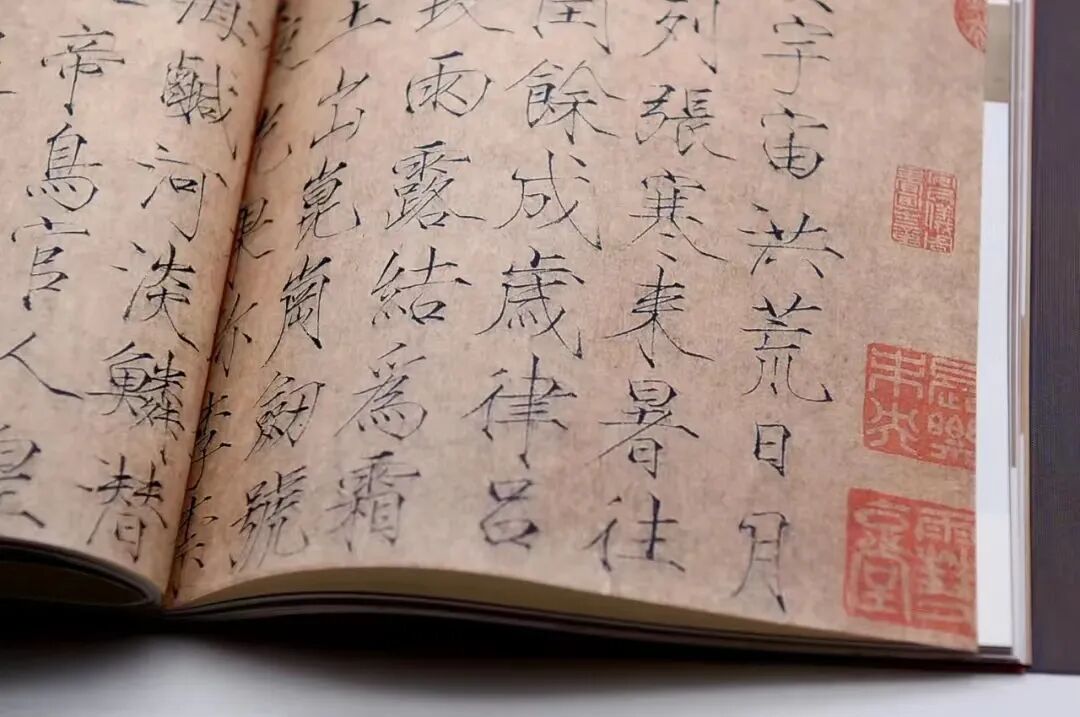 宇宙洪荒日月
列張寒來暑往
閏餘成歲律呂
致雨露結爲霜
出崑崗劍號
夜光果珍李柰
海鹹河淡鱗潛
帝鳥官人皇